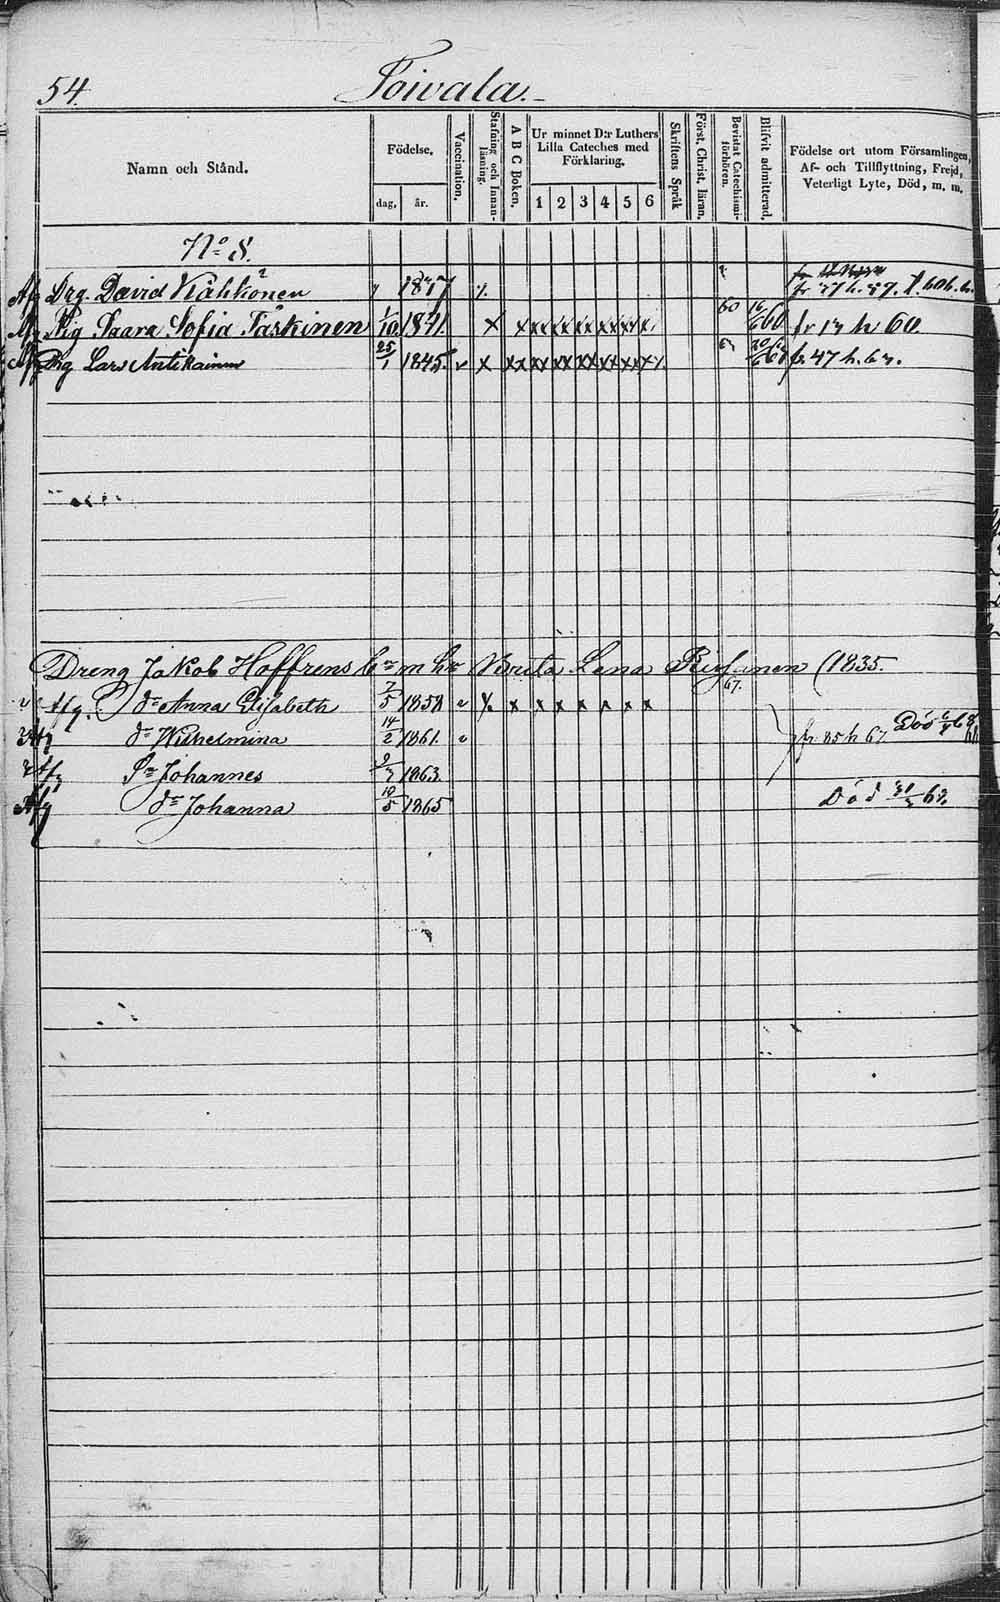 54. Toivala.
Namn och Stånd. Födelse. dag. år. Vaccination. Stafning och Innanläsning. A B C Boken. Ur minnet D:r Luthers Lilla Cateches med Förklaring. 1 2 3 4 5 6 Skriftens Språk Först. Christ. läran. Bevistat Catechismiförhören. Blifvit admitterad. Födelse ort utom Församlingen, Af- och Tillflyttning, Frejd, Veterligt Lyte, Död, m. m.
No 8.
Afg Drg. David Kähkönen
Afg Pig Saara Sofia Taskinen 1/10 1841. x x xx xx xx xx xx xx 60 fr 17 h 60
Afg Drg Lars Antikainen 25/1 1845. v x xx xx xx xx xx xx fr 47 h. 67.
Dreng Jakob Hoffrens m Brita Lena (1835.
Afg. dr Anna Elisabeth 7/5 1858 v x x x x x x x 67.
Afg dr Wilhelmina 14/2 1861. v fr. 85 h 67. Död
Afg Sn Johannes 1863
Afg dr Johanna 10/5 1865 Död